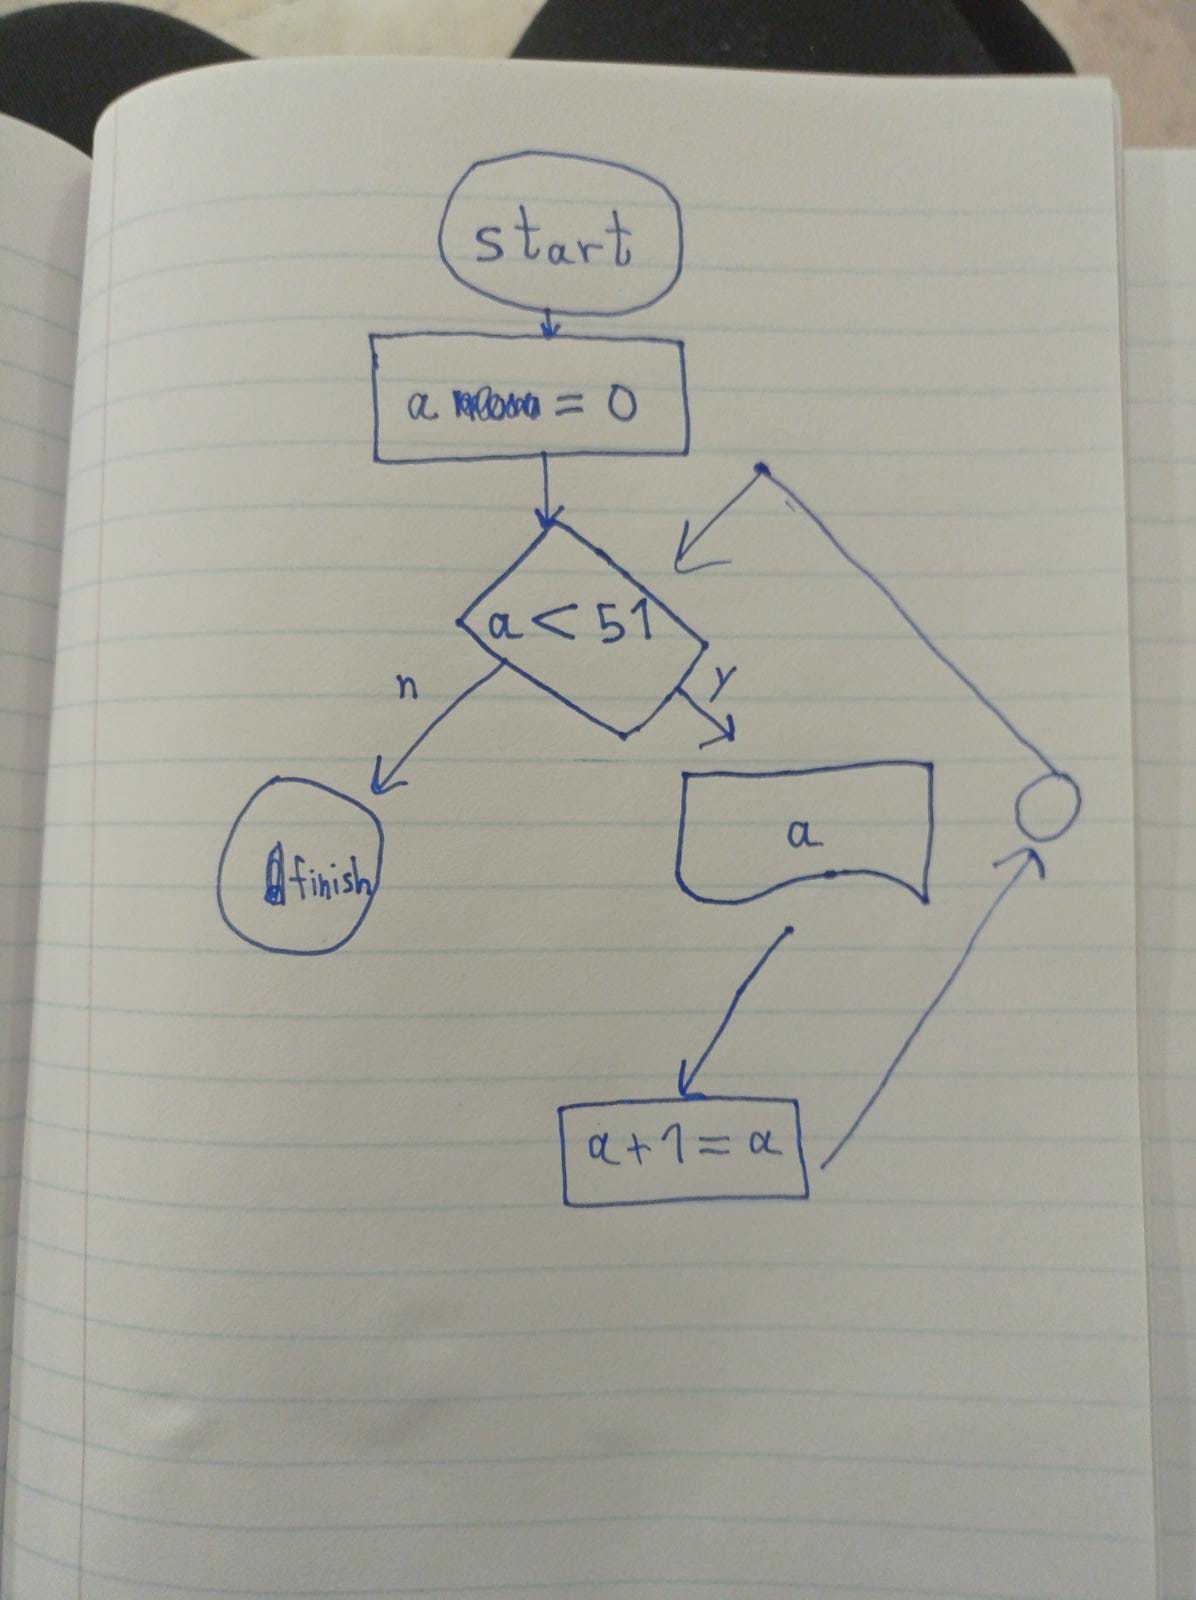 start
a = 0
a < 51
n
y
a
finish
a + 1 = a